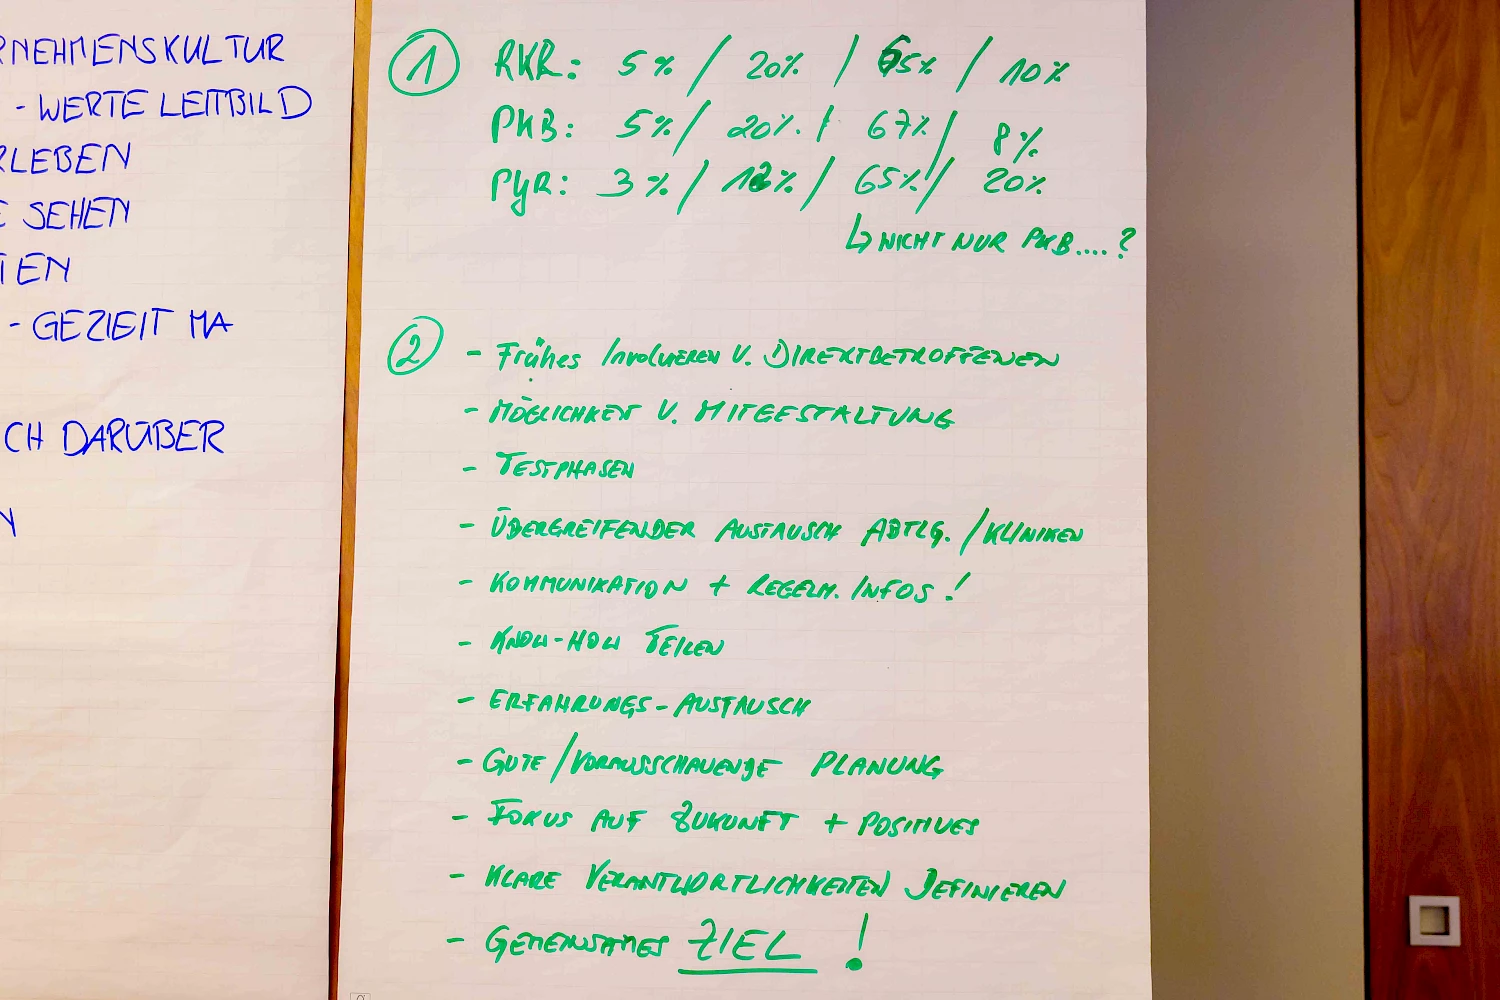 RNEHMENSKULTUR
- WERTE LEITBILD
RLEBEN
E SEHEN
TEN
- GEZIEIT MA
CH DARÜBER
N
1 RKR: 5% / 20% / 65% / 10%
PKB: 5% / 20% / 67% / 8%
PYR: 3% / 12% / 65% / 20%
↳ NICHT NUR PKB....?
2 - Frühes Involvieren V. DIREKTBETROFFENEN
- MÖGLICHKEIT V. MITGESTALTUNG
- TESTPHASEN
- ÜBERGREIFENDER AUSTAUSCH ABTLG. / KLINIKEN
- KOMMUNIKATION + REGELM. INFOS!
- KNOW-HOW TEILEN
- ERFAHRUNGS-AUSTAUSCH
- GUTE / VORAUSSCHAUENDE PLANUNG
- FOKUS AUF ZUKUNFT + POSITIVES
- KLARE VERANTWORTLICHKEITEN DEFINIEREN
- GEMEINSAMES ZIEL !